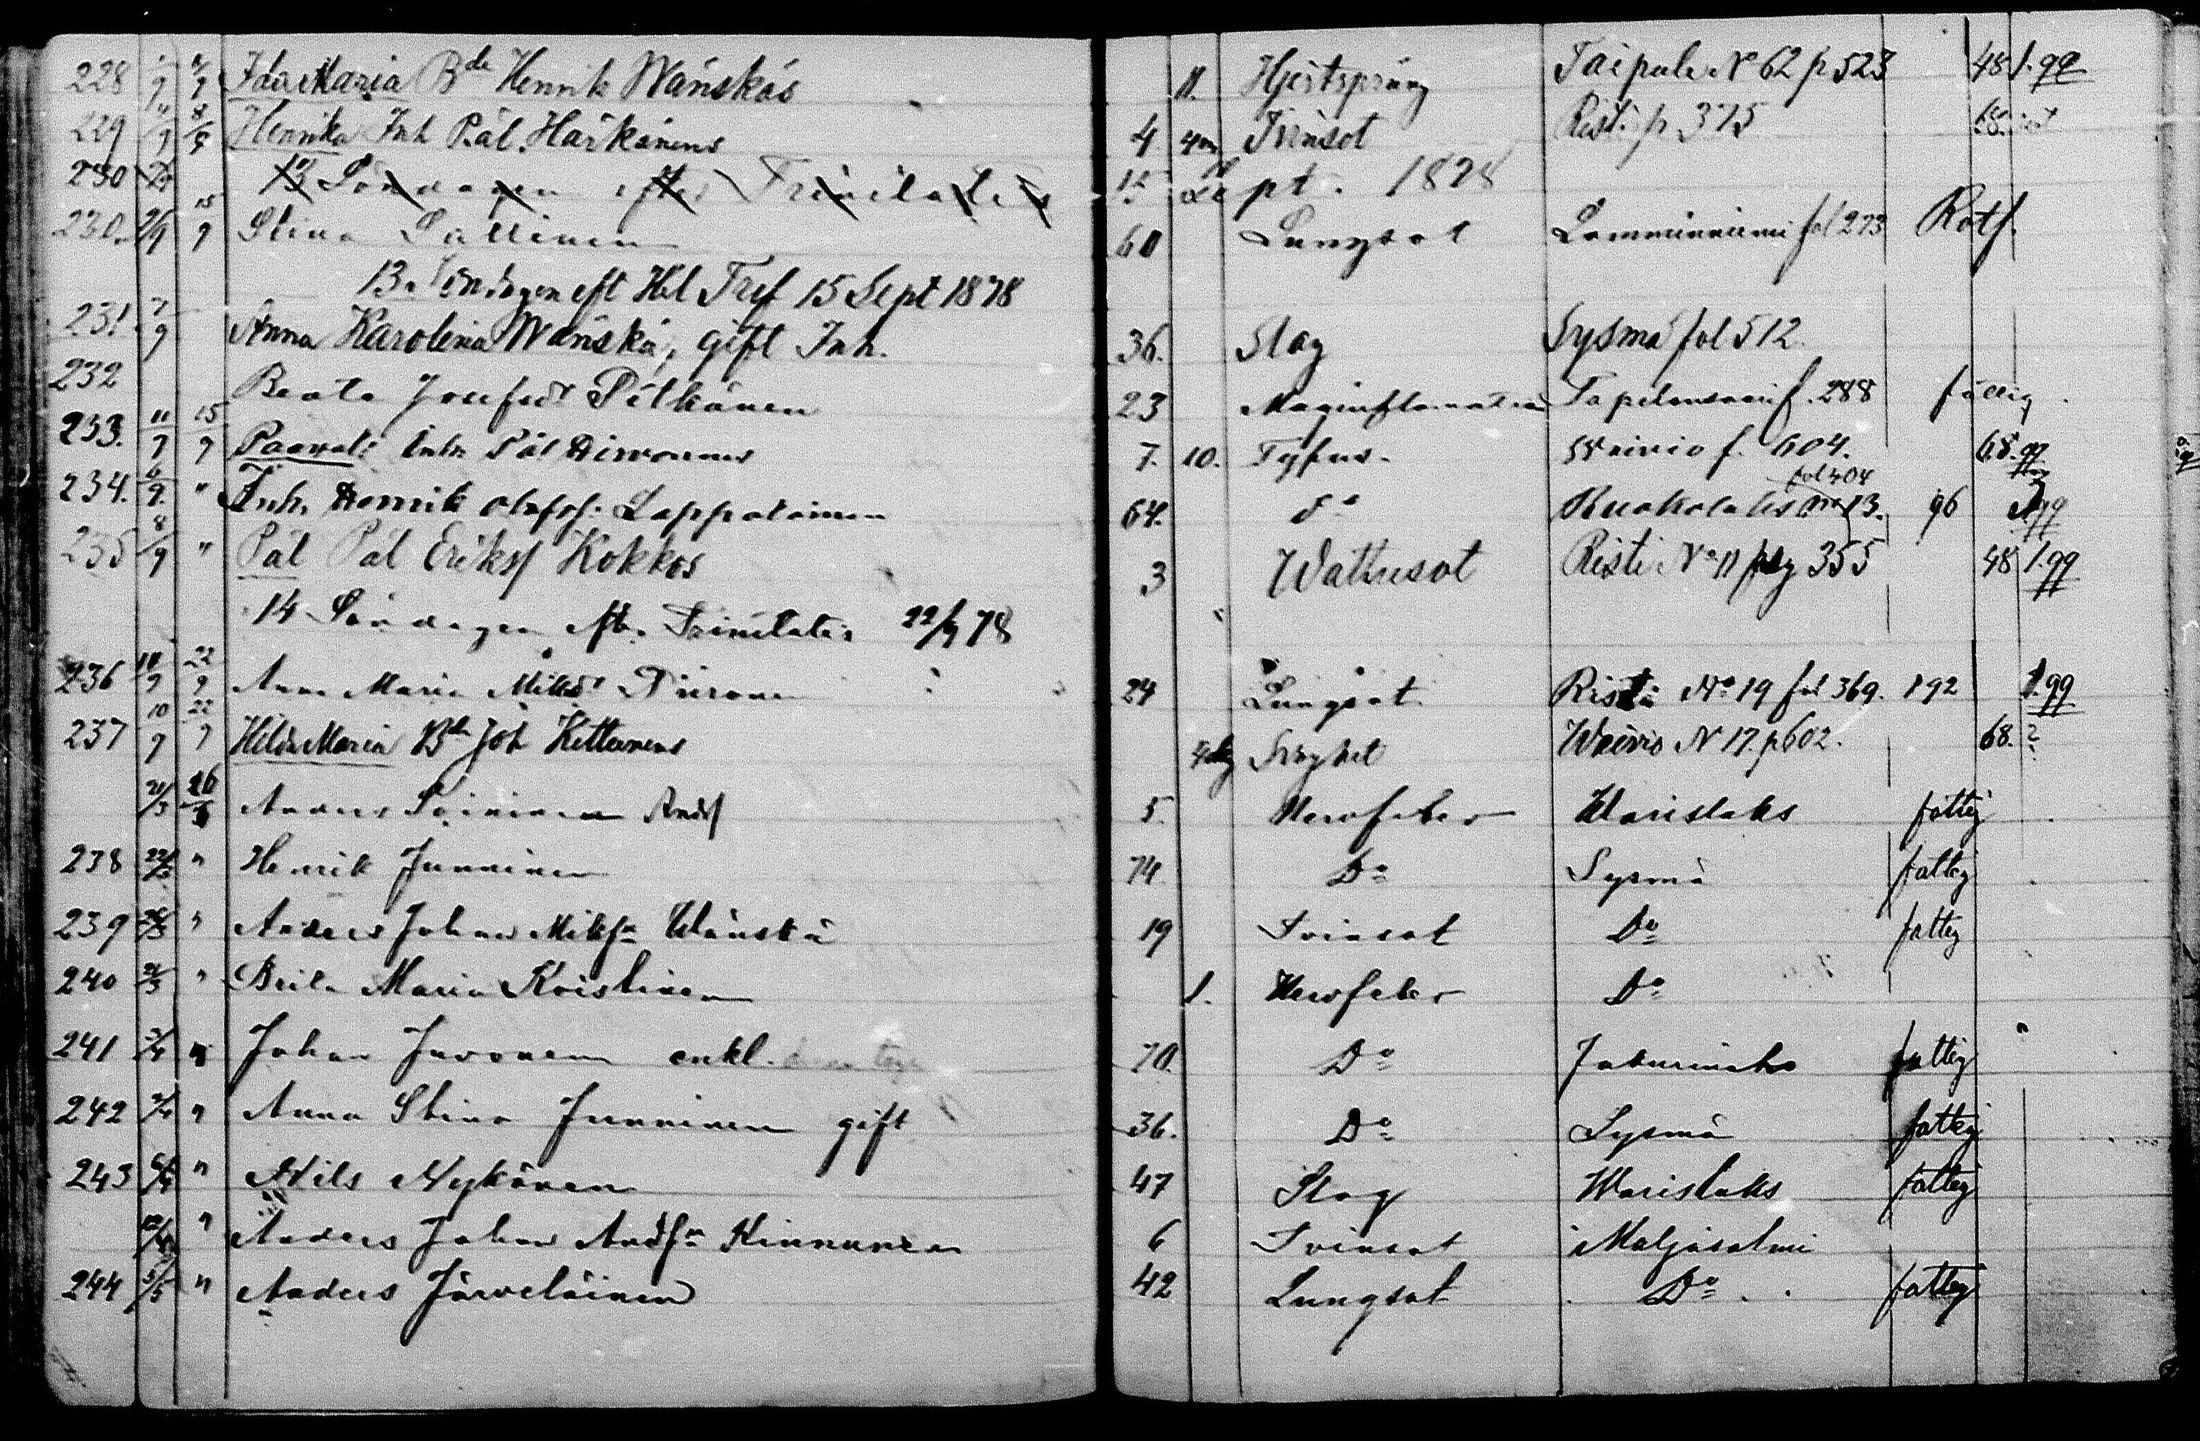 228 9 9 Ida Maria Bde Henrik Wänskäs 11. Hjertspräng Taipale No 62 p 523 48 1.99
229 11/9 8/9 Henrika Inh Pål Härkönens 4 4m Trinsot Risti p. 375
230 13 Söndagen efter Trinitatis 15 Sept. 1878
230. 9 15/9 Stina Sallinen 60 Lungsot Lamminniemi fol 273 Rotf.
13. Söndagen eft Hel Tref 15 Sept 1878
231. 7/9 Anna Karolina Wänskä, gift Inh. 36. Slag Sysmä fol 512.
232 Beata Josefsdr Pitkänen 23 Maginflamation f. 288 fattig
233. 11/9 15/9 Paavali Inh Pål Hirvonens 7. 10. Typus. Waivio f. 604. 68. 99
234. 6/9. " Inh. Henrik Olofss. Lappalainen 64. Do Ruokolaks No 13. fol 404 96 99
235 8/9 " Pål Pål Erikss Kokkos 3 Wattusot Risti No 11 pag 355 48 1.99
14 Söndagen eft. Trinitatis 22/9 78
236 11/9 22/9 Anna Maria Miksdr Piironen 24 Lungsot Risti No 19 fol 369. 192 1.99
237 10/9 22/9 Hilda Maria Bde Joh Kettunens 4dg Swaghet Waivio N 17. p 602. 68. ?
20/3 26 Anders Soininen Andss 5. Nervfeber Warislaks fattig
238 22/3 " Henrik Junninen 74. Do Sysmä fattig
239 26/3 " Anders Johan Mikssn Wänskä 19 Tvinsot Do fattig
240 3 " Brita Maria Koistinen 1. Nervfeber Do
241 4 " Johan Juvonen enkl. 70. Do fattig
242 2/4 " Anna Stina Junninen gift 36. Do Sysmä fattig
243 4 " Nils Nykänen 47 Slag Warislaks fattig
12/4 " Anders Johan Andssn Kinnunen 6 Tvinsot Maljasalmi
244 5/5 " Anders Järveläinen 42 Lungsot Do fattig